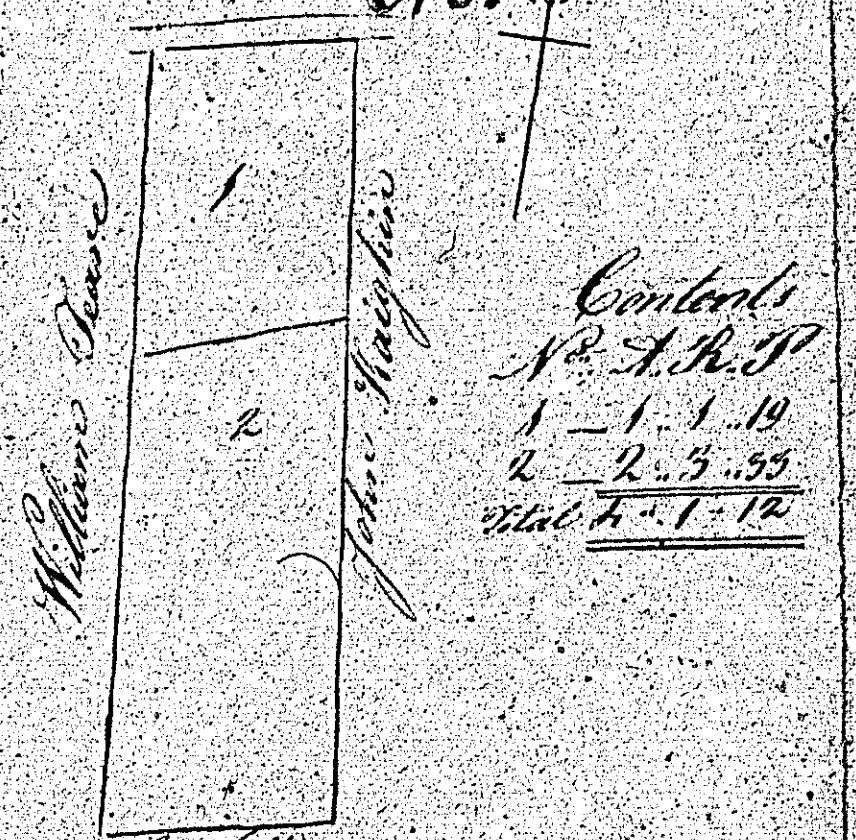 1
2
William Teare
John Kaighin
Contents
No. A. R. P
1 _ 1 .. 1 .. 19
2 _ 2 .. 3 .. 33
Total 4 .. 1 .. 12